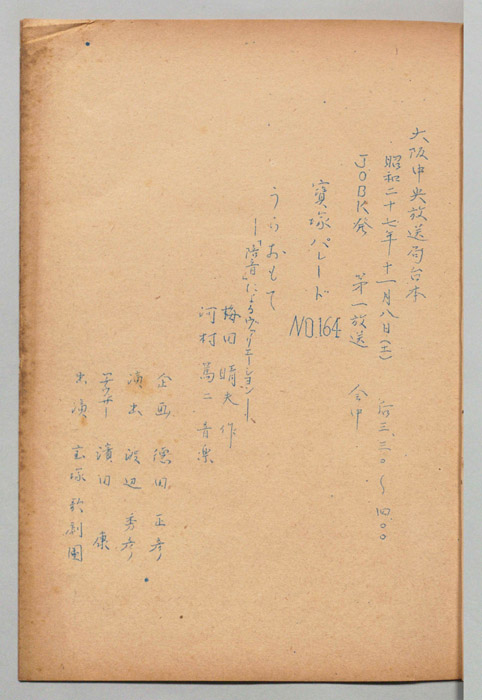 大阪中央放送局台本
昭和二十七年十一月八日(土) 后三、三〇~四、〇〇
JOBK発 第一放送 全中
寳塚パレード NO.164
うらおもて
―「陪音」によるヴァリエーション―
梅田晴夫 作
河村篤二 音楽
企画 徳田正彦
演出 渡辺秀彦
アナウサー 濱田 康
出演 宝塚歌劇團